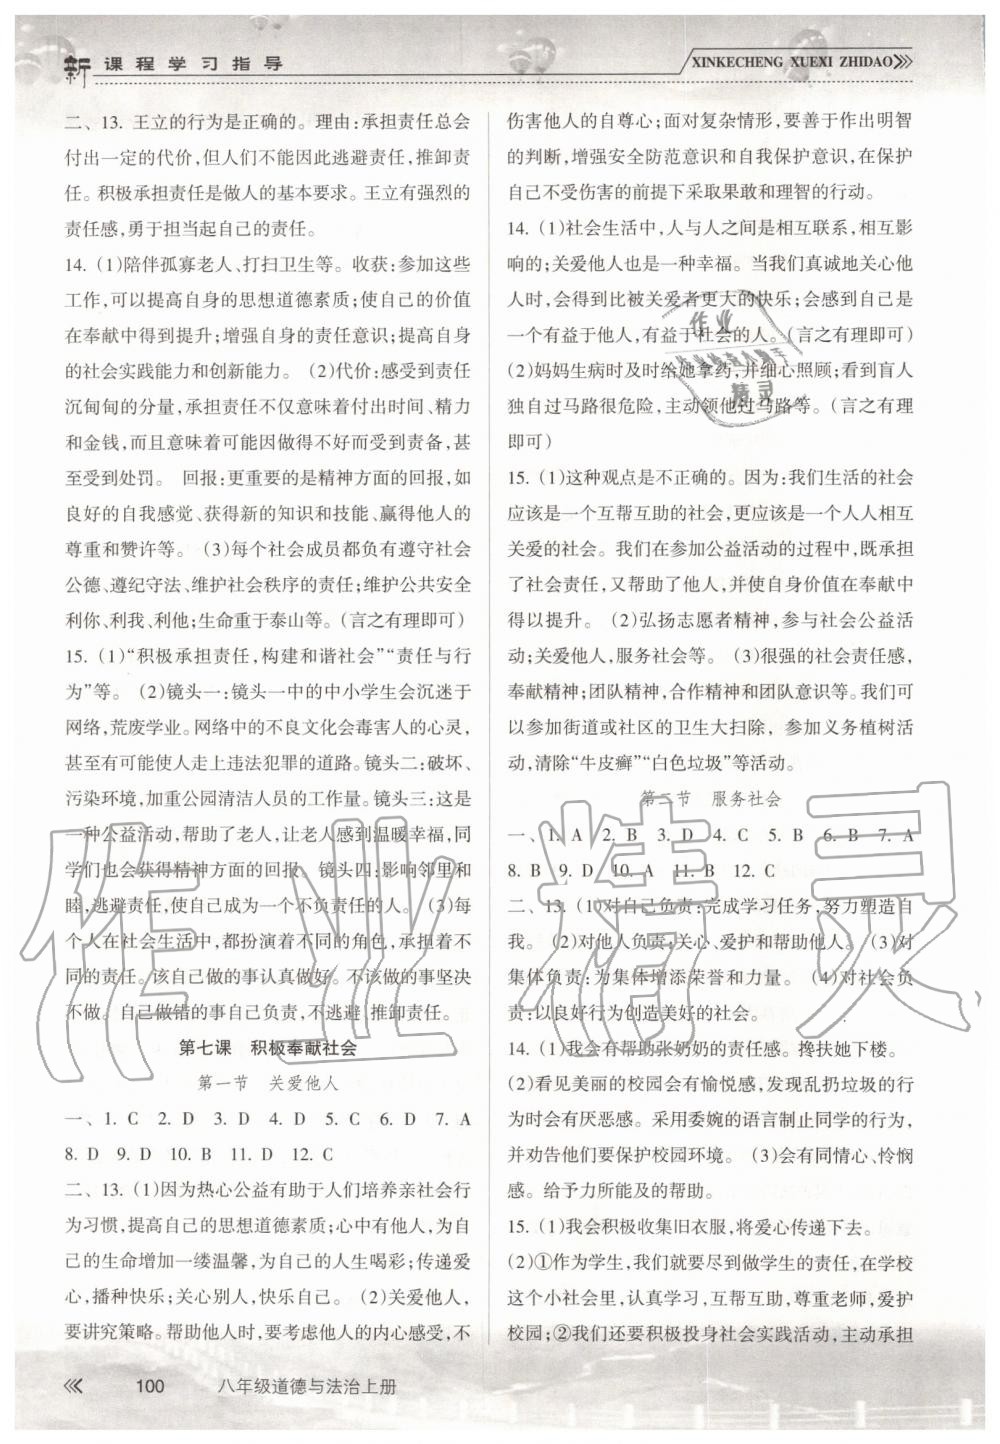 新课程学习指导
XINKECHENG XUEXI ZHIDAO
二、13. 王立的行为是正确的。理由:承担责任总会
付出一定的代价,但人们不能因此逃避责任,推卸责
任。积极承担责任是做人的基本要求。王立有强烈的
责任感,勇于担当起自己的责任。
14. (1)陪伴孤寡老人、打扫卫生等。收获:参加这些
工作,可以提高自身的思想道德素质;使自己的价值
在奉献中得到提升;增强自身的责任意识;提高自身
的社会实践能力和创新能力。 (2)代价:感受到责任
沉甸甸的分量,承担责任不仅意味着付出时间、精力
和金钱,而且意味着可能因做得不好而受到责备,甚
至受到处罚。 回报:更重要的是精神方面的回报,如
良好的自我感觉、获得新的知识和技能、赢得他人的
尊重和赞许等。 (3)每个社会成员都负有遵守社会
公德、遵纪守法、维护社会秩序的责任;维护公共安全
利你、利我、利他;生命重于泰山等。(言之有理即可)
15. (1)“积极承担责任,构建和谐社会”“责任与行
为”等。 (2)镜头一:镜头一中的中小学生会沉迷于
网络,荒废学业。网络中的不良文化会毒害人的心灵,
甚至有可能使人走上违法犯罪的道路。镜头二:破坏、
污染环境,加重公园清洁人员的工作量。镜头三:这是
一种公益活动,帮助了老人,让老人感到温暖幸福,同
学们也会获得精神方面的回报。镜头四:影响邻里和
睦,逃避责任,使自己成为一个不负责任的人。 (3)每
个人在社会生活中,都扮演着不同的角色,承担着不
同的责任。该自己做的事认真做好。不该做的事坚决
不做。自己做错的事自己负责,不逃避、推卸责任。
第七课 积极奉献社会
第一节 关爱他人
一、1. C 2. D 3. D 4. D 5. C 6. D 7. A
8. D 9. D 10. B 11. D 12. C
二、13. (1)因为热心公益有助于人们培养亲社会行
为习惯,提高自己的思想道德素质;心中有他人,为自
己的生命增加一缕温馨,为自己的人生喝彩;传递爱
心,播种快乐;关心别人,快乐自己。 (2)关爱他人,
要讲究策略。帮助他人时,要考虑他人的内心感受,不
伤害他人的自尊心;面对复杂情形,要善于作出明智
的判断,增强安全防范意识和自我保护意识,在保护
自己不受伤害的前提下采取果敢和理智的行动。
14. (1)社会生活中,人与人之间是相互联系,相互影
响的;关爱他人也是一种幸福。当我们真诚地关心他
人时,会得到比被关爱者更大的快乐;这会感到自己是
一个有益于他人,有益于社会的人。(言之有理即可)
(2)妈妈生病时及时给她拿药,并细心照顾;看到盲人
独自过马路很危险,主动领他过马路等。(言之有理
即可)
15. (1)这种观点是不正确的。因为:我们生活的社会
应该是一个互帮互助的社会,更应该是一个人人相互
关爱的社会。我们在参加公益活动的过程中,既承担
了社会责任,又帮助了他人,并使自身价值在奉献中
得以提升。 (2)弘扬志愿者精神,参与社会公益活
动;关爱他人,服务社会等。 (3)很强的社会责任感,
奉献精神;团队精神,合作精神和团队意识等。我们可
以参加街道或社区的卫生大扫除,参加义务植树活
动,清除“牛皮癣”“白色垃圾”等活动。
第二节 服务社会
一、1. A 2. B 3. D 4. C 5. B 6. B 7. A
8. B 9. D 10. A 11. B 12. C
二、13. (1)对自己负责:完成学习任务,努力塑造自
我。 (2)对他人负责:关心、爱护和帮助他人。 (3)对
集体负责:为集体增添荣誉和力量。 (4)对社会负
责:以良好行为创造美好的社会。
14. (1)我会有帮助张奶奶的责任感。搀扶她下楼。
(2)看见美丽的校园会有愉悦感,发现乱扔垃圾的行
为时会有厌恶感。采用委婉的语言制止同学的行为,
并劝告他们要保护校园环境。 (3)会有同情心、怜悯
感。给予力所能及的帮助。
15. (1)我会积极收集旧衣服,将爱心传递下去。
(2)①作为学生,我们就要尽到做学生的责任,在学校
这个小社会里,认真学习,互帮互助,尊重老师,爱护
校园;②我们还要积极投身社会实践活动,主动承担
100 八年级道德与法治上册
作业精灵
作业
精灵